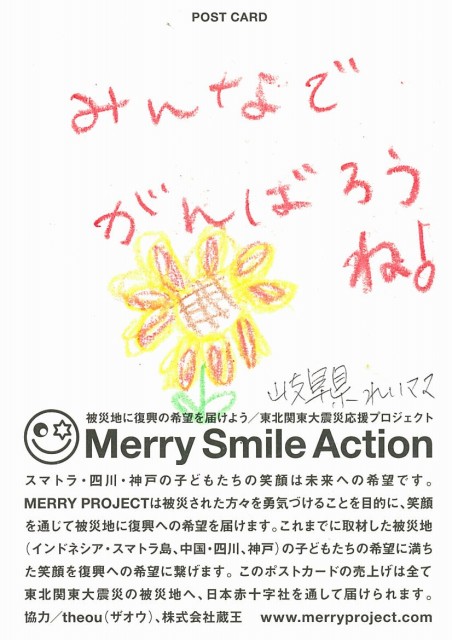 POST CARD
みんなで
がんばろう
ね!
岐阜県 れいママ
被災地に復興の希望を届けよう／東北関東大震災応援プロジェクト
Merry Smile Action
スマトラ・四川・神戸の子どもたちの笑顔は未来への希望です。
MERRY PROJECTは被災された方々を勇気づけることを目的に、笑顔
を通じて被災地に復興への希望を届けます。これまでに取材した被災地
（インドネシア・スマトラ島、中国・四川、神戸）の子どもたちの希望に満ち
た笑顔を復興への希望に繋げます。このポストカードの売上げは全て
東北関東大震災の被災地へ、日本赤十字社を通して届けられます。
協力／theou（ザオウ）、株式会社蔵王　www.merryproject.com